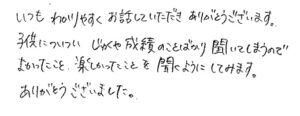 いつも わかりやすく お話していただき ありがとうございます。
子供についつい じゅくや成績のことばかり 聞いてしまうので
よかったこと、楽しかったこと を 聞くようにしてみます。
ありがとう ございました。